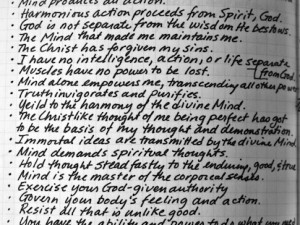 • Mind produces all action.
• Harmonious action proceeds from Spirit, God.
• God is not separate from the wisdom He bestows.
• The Mind that made me maintains me.
• The Christ has forgiven my sins.
• I have no intelligence, action, or life separate
[from God.
• Muscles have no power to be lost.
• Mind alone empowers me, transcending all other power
• Truth invigorates and purifies.
• Yeild to the harmony of the divine Mind.
• The Christlike thought of me being perfect has got
to be the basis of my thought and demonstration.
• Immortal ideas are transmitted by the divine Mind
• Mind demands spiritual thoughts.
• Hold thought steadfastly to the enduring, good, & true
• Mind is the master of the corporeal senses.
• Exercise your God-given authority
• Govern your body's feeling and action.
• Resist all that is unlike good.
• You have the ability and power to do what you